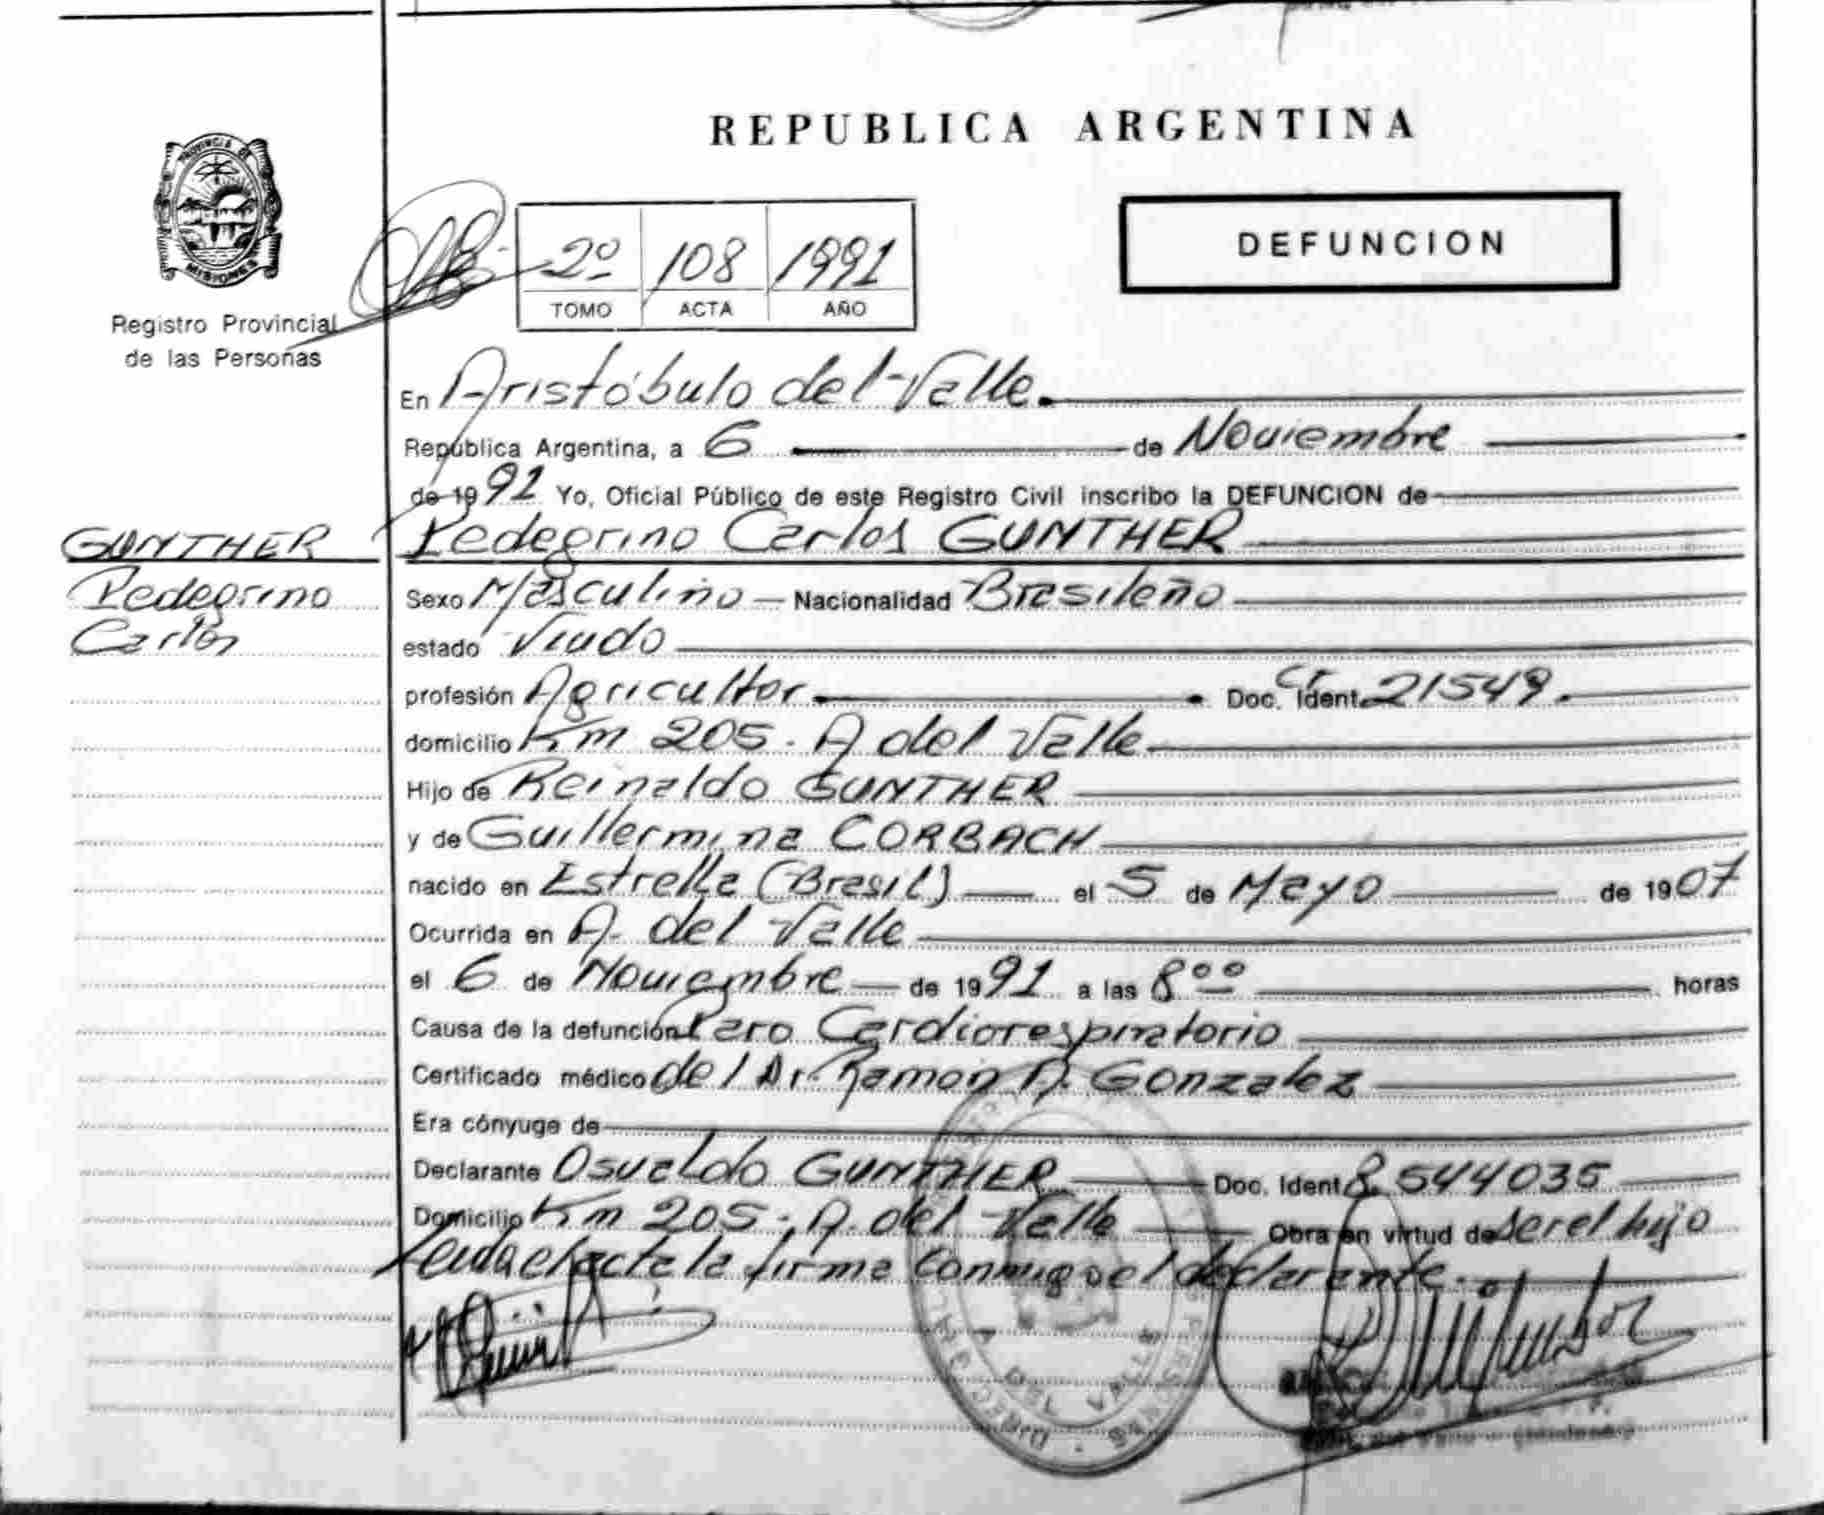 REPUBLICA ARGENTINA
PROVINCIA DE
MISIONES
Registro Provincial
de las Personas
2º 108 1991
TOMO ACTA AÑO
DEFUNCION
En Aristóbulo del Valle.
República Argentina, a 6 de Noviembre
de 1991 Yo, Oficial Público de este Registro Civil inscribo la DEFUNCION de
GUNTHER
Pedegrino
Carlos
Pedegrino Carlos GUNTHER
Sexo Masculino Nacionalidad Brasileño
estado Viudo
profesión Agricultor. Doc. Ident. CI 21549.
domicilio Km 205. A del Valle
Hijo de Reinaldo GUNTHER
y de Guillermina CORBACH
nacido en Estrella (Brasil) el 5 de Mayo de 1907
Ocurrida en A. del Valle
el 6 de Noviembre de 1991 a las 8ºº horas
Causa de la defunción Paro Cardiorespiratorio
Certificado médico del Dr. Ramon D. Gonzalez
Era cónyuge de
Declarante Osvaldo GUNTHER Doc. Ident 8.544035
Domicilio Km 205. A. del Valle Obra en virtud de ser el hijo
Leida el acta la firma conmigo el declarante.
A DEL VALLE